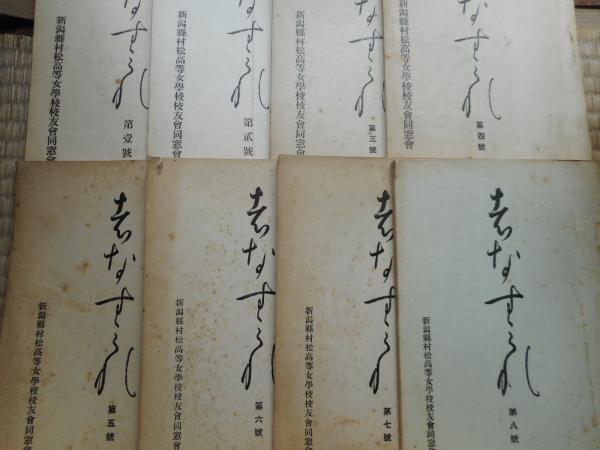 なすみれ
第四號
新潟縣村松高等女學校校友會同窓會
なすみれ
第三號
新潟縣村松高等女學校校友會同窓會
なすみれ
第貳號
新潟縣村松高等女學校校友會同窓會
なすみれ
第壹號
新潟縣村松高等女學校校友會同窓會
者なすみれ
第八號
新潟縣村松高等女學校校友會同窓會
者なすみれ
第七號
新潟縣村松高等女學校校友會同窓會
者なすみれ
第六號
新潟縣村松高等女學校校友會同窓會
者なすみれ
第五號
新潟縣村松高等女學校校友會同窓會